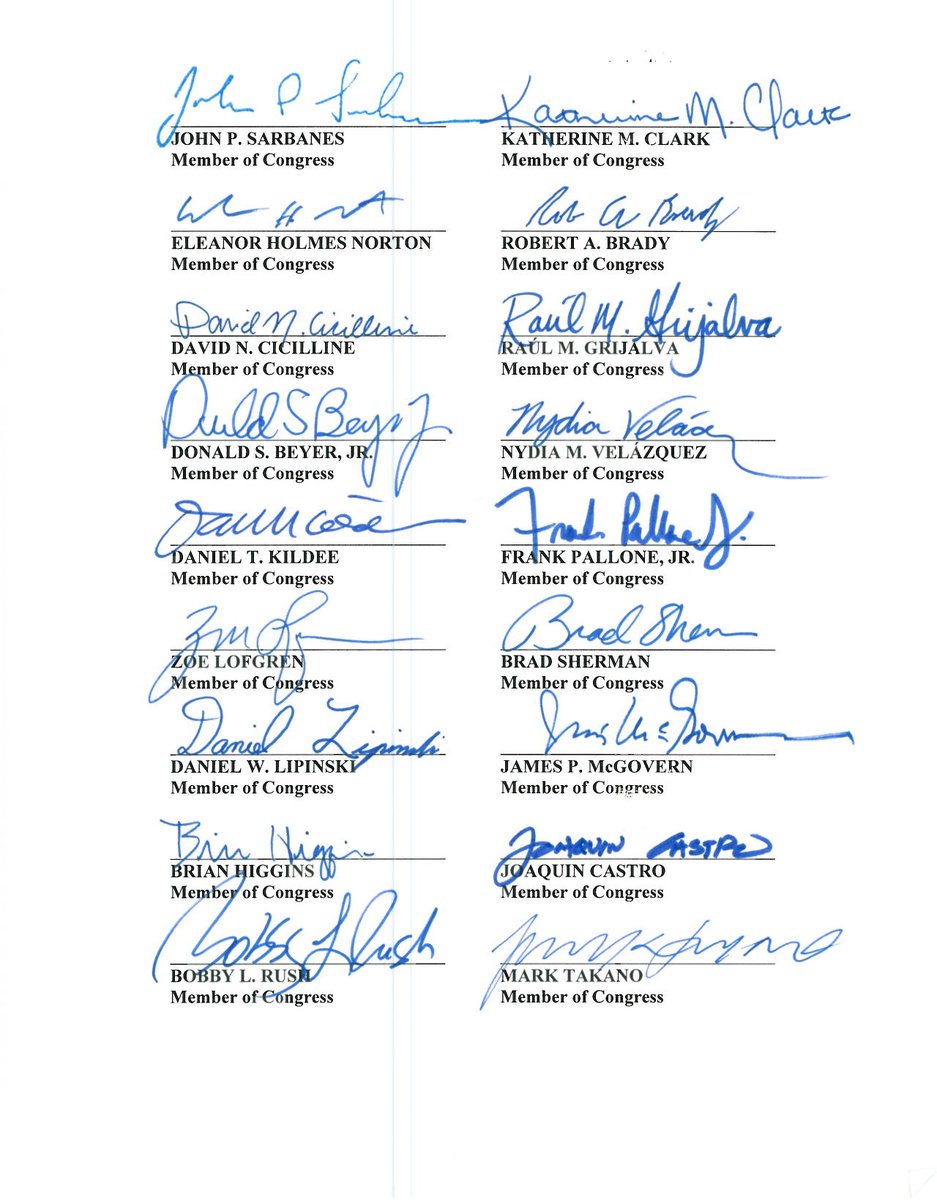 John P Sarbanes Katherine M. Clark
JOHN P. SARBANES KATHERINE M. CLARK
Member of Congress Member of Congress
Rob A Brady
ELEANOR HOLMES NORTON ROBERT A. BRADY
Member of Congress Member of Congress
David N. Cicilline Raúl M. Grijalva
DAVID N. CICILLINE RAÚL M. GRIJALVA
Member of Congress Member of Congress
Donald S Beyer Jr Nydia Velázq
DONALD S. BEYER, JR. NYDIA M. VELÁZQUEZ
Member of Congress Member of Congress
Frank Pallone Jr.
DANIEL T. KILDEE FRANK PALLONE, JR.
Member of Congress Member of Congress
Brad Sherman
ZOE LOFGREN BRAD SHERMAN
Member of Congress Member of Congress
Daniel Lipinski James McGovern
DANIEL W. LIPINSKI JAMES P. McGOVERN
Member of Congress Member of Congress
Brian Higgins JOAQUIN CASTRO
BRIAN HIGGINS JOAQUIN CASTRO
Member of Congress Member of Congress
Bobby L Rush
BOBBY L. RUSH MARK TAKANO
Member of Congress Member of Congress